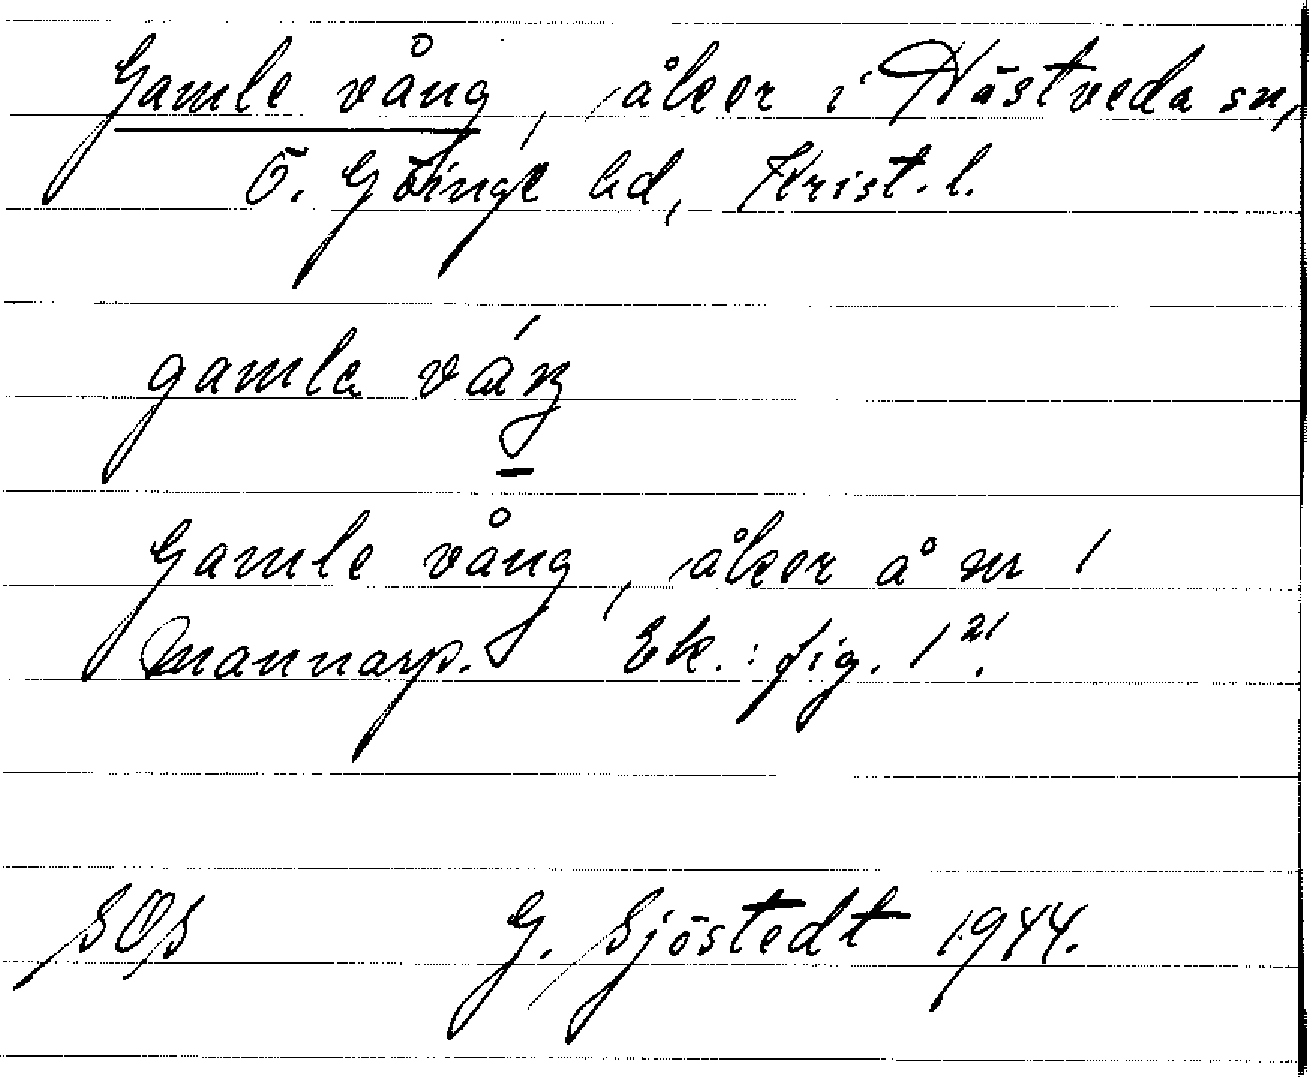 Gamle vång, åker i Hästveda sn,
Ö. Göinge hd, Krist. l.
gamla váŋ
Gamle vång, åker å nr 1
Mannarp. Ek.: fig. 1²¹.
SOS G. Sjöstedt 1944.